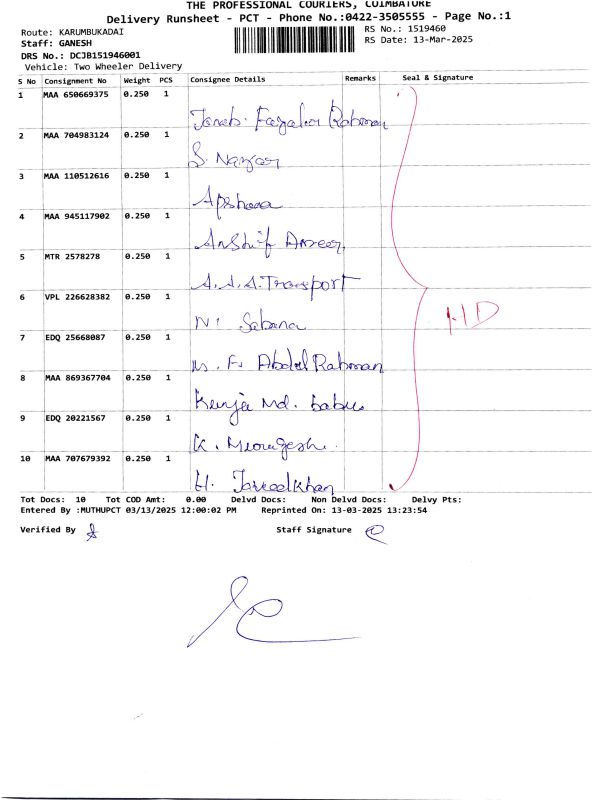 THE PROFESSIONAL COURIERS, COIMBATORE
Delivery Runsheet - PCT - Phone No.:0422-3505555 - Page No.:1
Route: KARUMBUKADAI
RS No.: 1519460
Staff: GANESH
RS Date: 13-Mar-2025
DRS No.: DCJB151946001
Vehicle: Two Wheeler Delivery
S No Consignment No Weight PCS Consignee Details Remarks Seal & Signature
1 MAA 650669375 0.250 1
Rahman
2 MAA 704983124 0.250 1
S. Nazar
3 MAA 110512616 0.250 1
Apshara
4 MAA 945117902 0.250 1
Anshif Ameer
5 MTR 2578278 0.250 1
A.A.A. Transport
6 VPL 226628382 0.250 1
N. Sabana
7 EDQ 25668087 0.250 1
M. F. Abdul Rahman
8 MAA 869367704 0.250 1
Md. babu
9 EDQ 20221567 0.250 1
K. Murugesh.
10 MAA 707679392 0.250 1
H. Javeedkhan
Tot Docs: 10 Tot COD Amt: 0.00 Delvd Docs: Non Delvd Docs: Delvy Pts:
Entered By :MUTHUPCT 03/13/2025 12:00:02 PM Reprinted On: 13-03-2025 13:23:54
Verified By Staff Signature